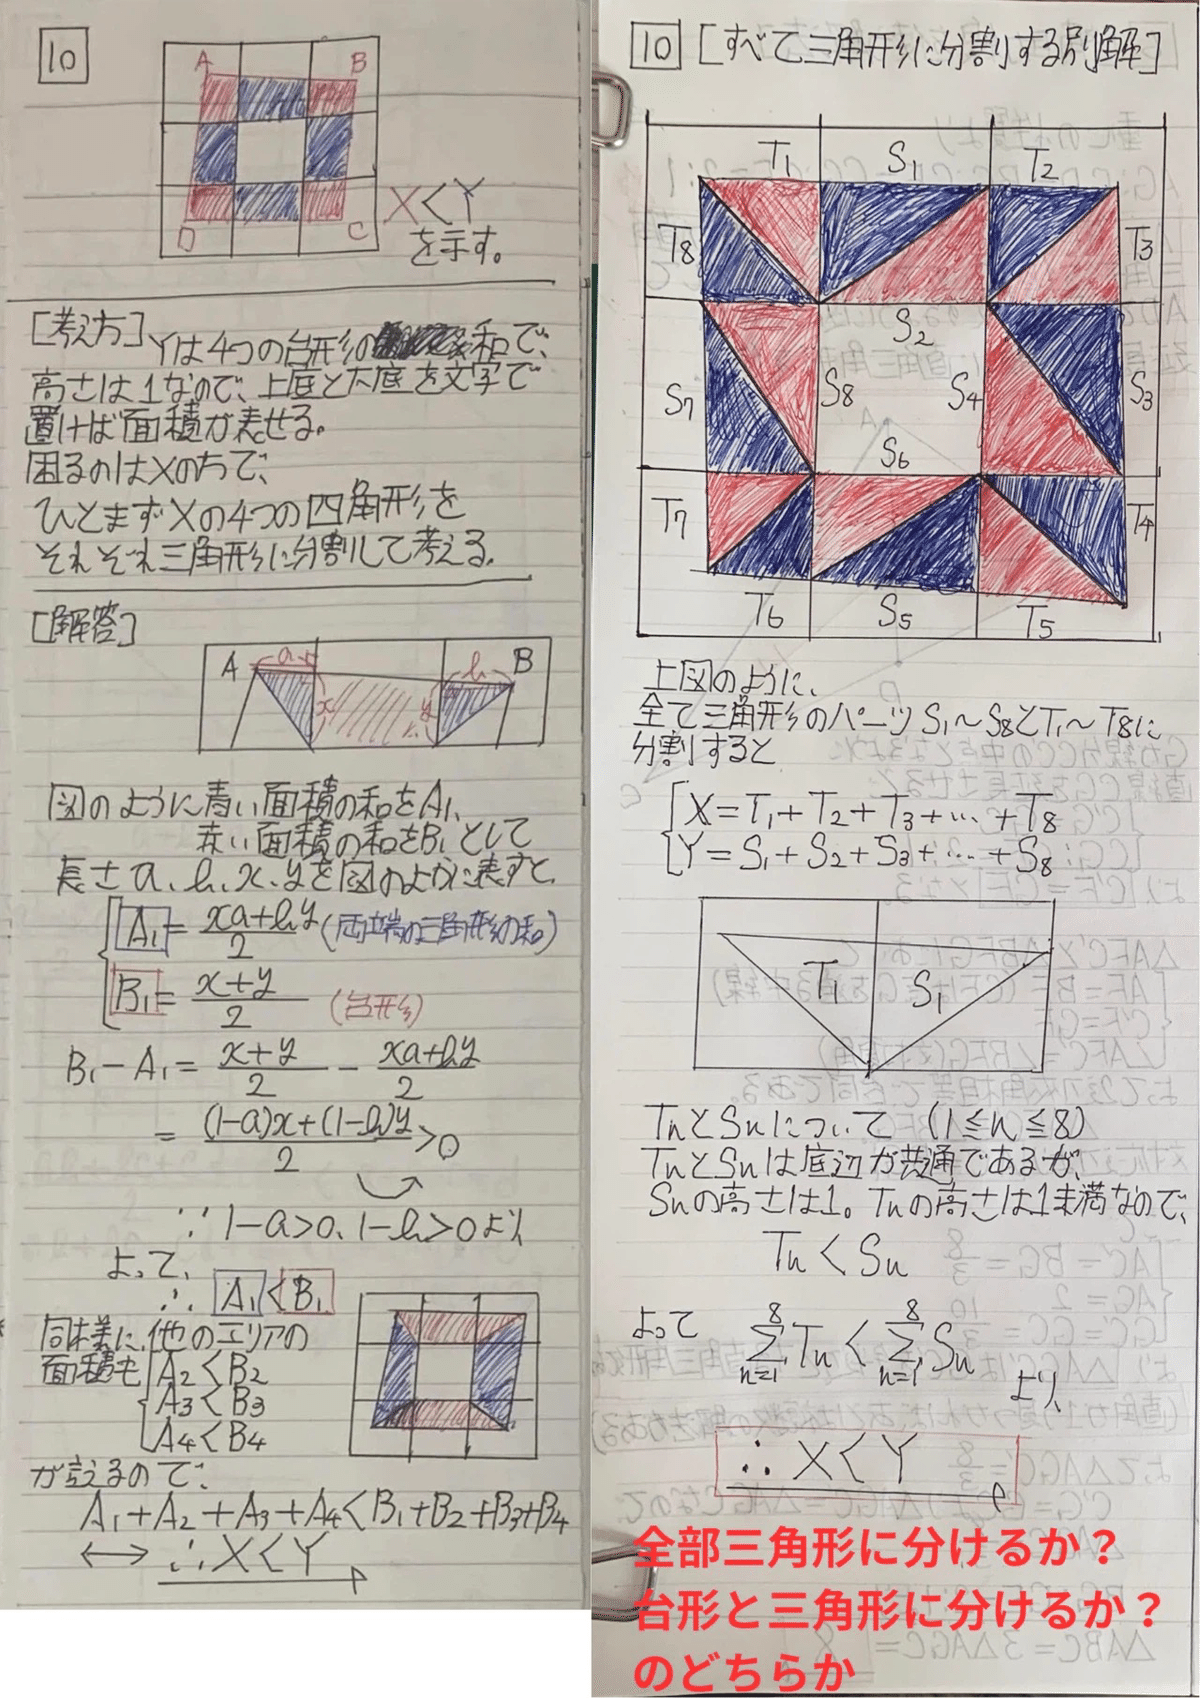 10
A
B
D
C
X<Y
を示す。
[考え方] Yは4つの台形の 和で、
高さは1なので、上底と下底を文字で
置けば面積が表せる。
困るのはXの方で、
ひとまずXの4つの四角形を
それぞれ三角形に分割して考える。
[解答]
A
a
x
y
b
B
図のように青い面積の和をA₁、
赤い面積の和をB₁として
長さa、b、x、yを図のように表すと、
A₁ = (xa+by)/2 (両端の三角形の和)
B₁ = (x+y)/2 (台形)
B₁-A₁ = (x+y)/2 - (xa+by)/2
= ((1-a)x+(1-b)y)/2 >0
∵ 1-a>0、1-b>0より
よって、
∴ A₁<B₁
同様に、他のエリアの
面積も
A₂<B₂
A₃<B₃
A₄<B₄
が言えるので、
A₁+A₂+A₃+A₄<B₁+B₂+B₃+B₄
⟷ ∴X<Y
10 [すべて三角形に分割する別解]
T₁
S₁
T₂
T₈
T₃
S₂
S₇
S₈
S₄
S₃
S₆
T₇
T₄
T₆
S₅
T₅
上図のように、
全て三角形のパーツS₁～S₈とT₁～T₈に
分割すると
X=T₁+T₂+T₃+…+T₈
Y=S₁+S₂+S₃+…+S₈
T₁
S₁
TnとSnについて (1≦n≦8)
TnとSnは底辺が共通であるが、
Snの高さは1。Tnの高さは1未満なので、
Tn<Sn
よって
8 Σ n=1 Tn < 8 Σ n=1 Sn
より、
∴ X<Y
全部三角形に分けるか？
台形と三角形に分けるか？
のどちらか